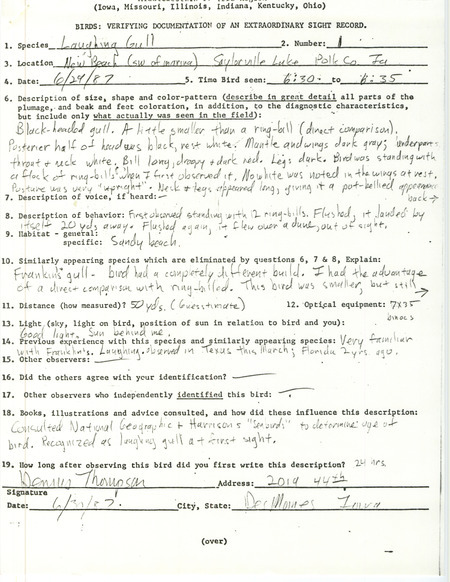 (Iowa, Missouri, Illinois, Indiana, Kentucky, Ohio)
BIRDS: VERIFYING DOCUMENTATION OF AN EXTRAORDINARY SIGHT RECORD.
1. Species Laughing Gull 2. Number: 1
3. Location New Beach (sw of marina) Saylorville Lake Polk Co. Ia
4. Date: 6/29/87 5. Time Bird seen: 6:30 to 6:35
6. Description of size, shape and color-pattern (describe in great detail all parts of the
plumage, and beak and feet coloration, in addition, to the diagnostic characteristics,
but include only what actually was seen in the field):
Black-headed gull. A little smaller than a ring-bill (direct comparison).
Posterior half of head was black, rest white. Mantle and wings dark gray; underparts
throat & neck white. Bill long, droopy & dark red. Legs dark. Bird was standing with
a flock of ring-bills when I first observed it. No white was noted in the wings at rest.
Posture was very "upright". Neck & legs appeared long, giving it a pot-bellied appearance
back →
7. Description of voice, if heard: -
8. Description of behavior: First observed standing with 12 ring-bills. Flushed, it landed by
itself 20 yds. away. Flushed again, it flew over a dune, out of sight.
9. Habitat - general:
specific: Sandy beach.
10. Similarly appearing species which are eliminated by questions 6, 7 & 8, Explain:
Franklin's gull - bird had a completely different build. I had the advantage
of a direct comparison with ring-billed. This bird was smaller, but still →
11. Distance (how measured)? 50 yds. (Guesstimate) 12. Optical equipment: 7x35
binocs
13. Light (sky, light on bird, position of sun in relation to bird and you):
Good light. Sun behind me.
14. Previous experience with this species and similarly appearing species: Very familiar
with Franklin's. Laughing observed in Texas this March; Florida 2 yrs ago.
15. Other observers: —
16. Did the others agree with your identification? —
17. Other observers who independently identified this bird: —
18. Books, illustrations and advice consulted, and how did these influence this description:
Consulted National Geographic & Harrison's "Seabirds" to determine age of
bird. Recognized as laughing gull at first sight.
19. How long after observing this bird did you first write this description? 24 hrs.
Dennis Thompson Address: 2014 44th
Signature
Date: 6/30/87. City, State: Des Moines Iowa
(over)